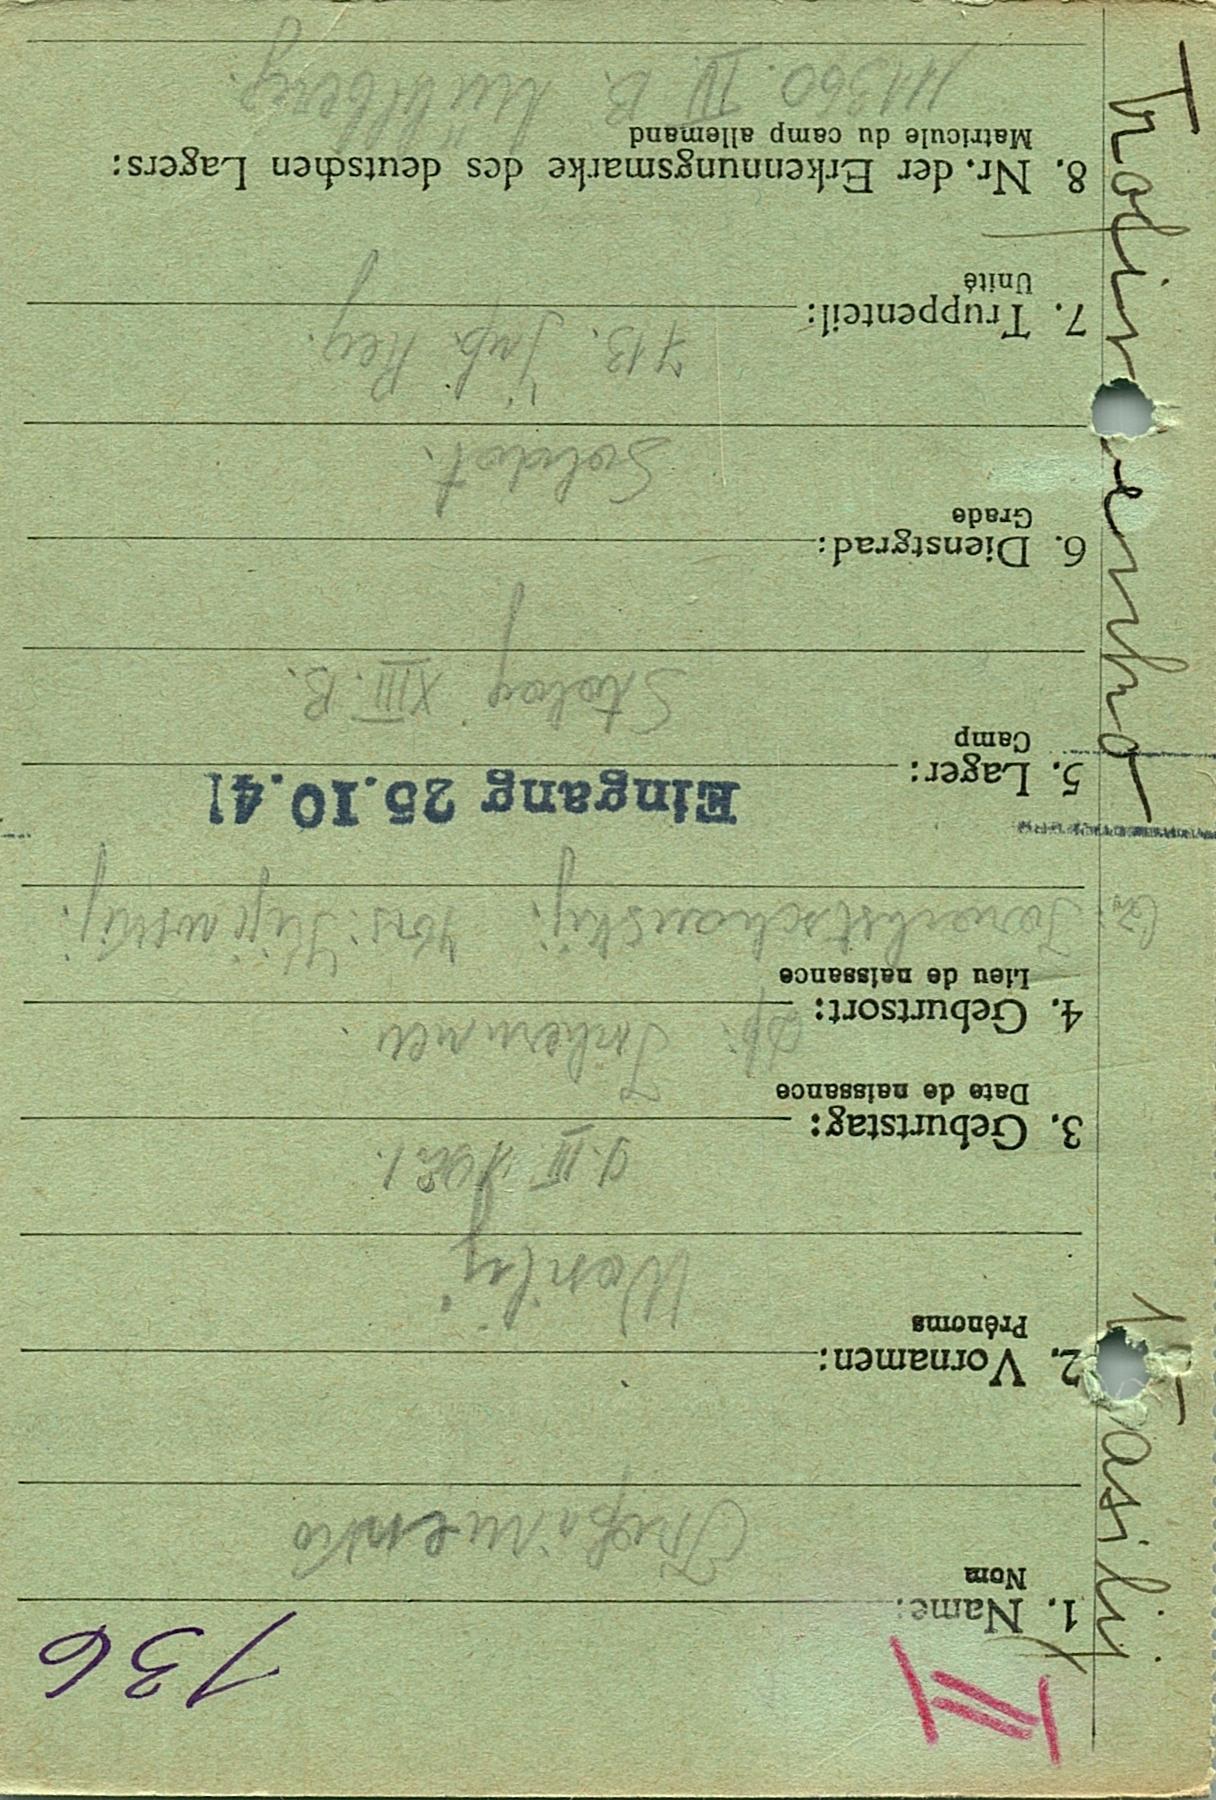 736
1. Name:
Nom
2. Vornamen:
Prénoms
Wasilij
3. Geburtstag:
Date de naissance
9. III 1921.
4. Geburtsort:
Lieu de naissance
5. Lager:
Camp
Eingang 25.10.41
Stalag XIII. B.
6. Dienstgrad:
Grade
Soldat.
7. Truppenteil:
Unité
713. Inf. Reg.
8. Nr. der Erkennungsmarke des deutschen Lagers:
Matricule du camp allemand
111360. IV B. Mühlberg.
Wasilij